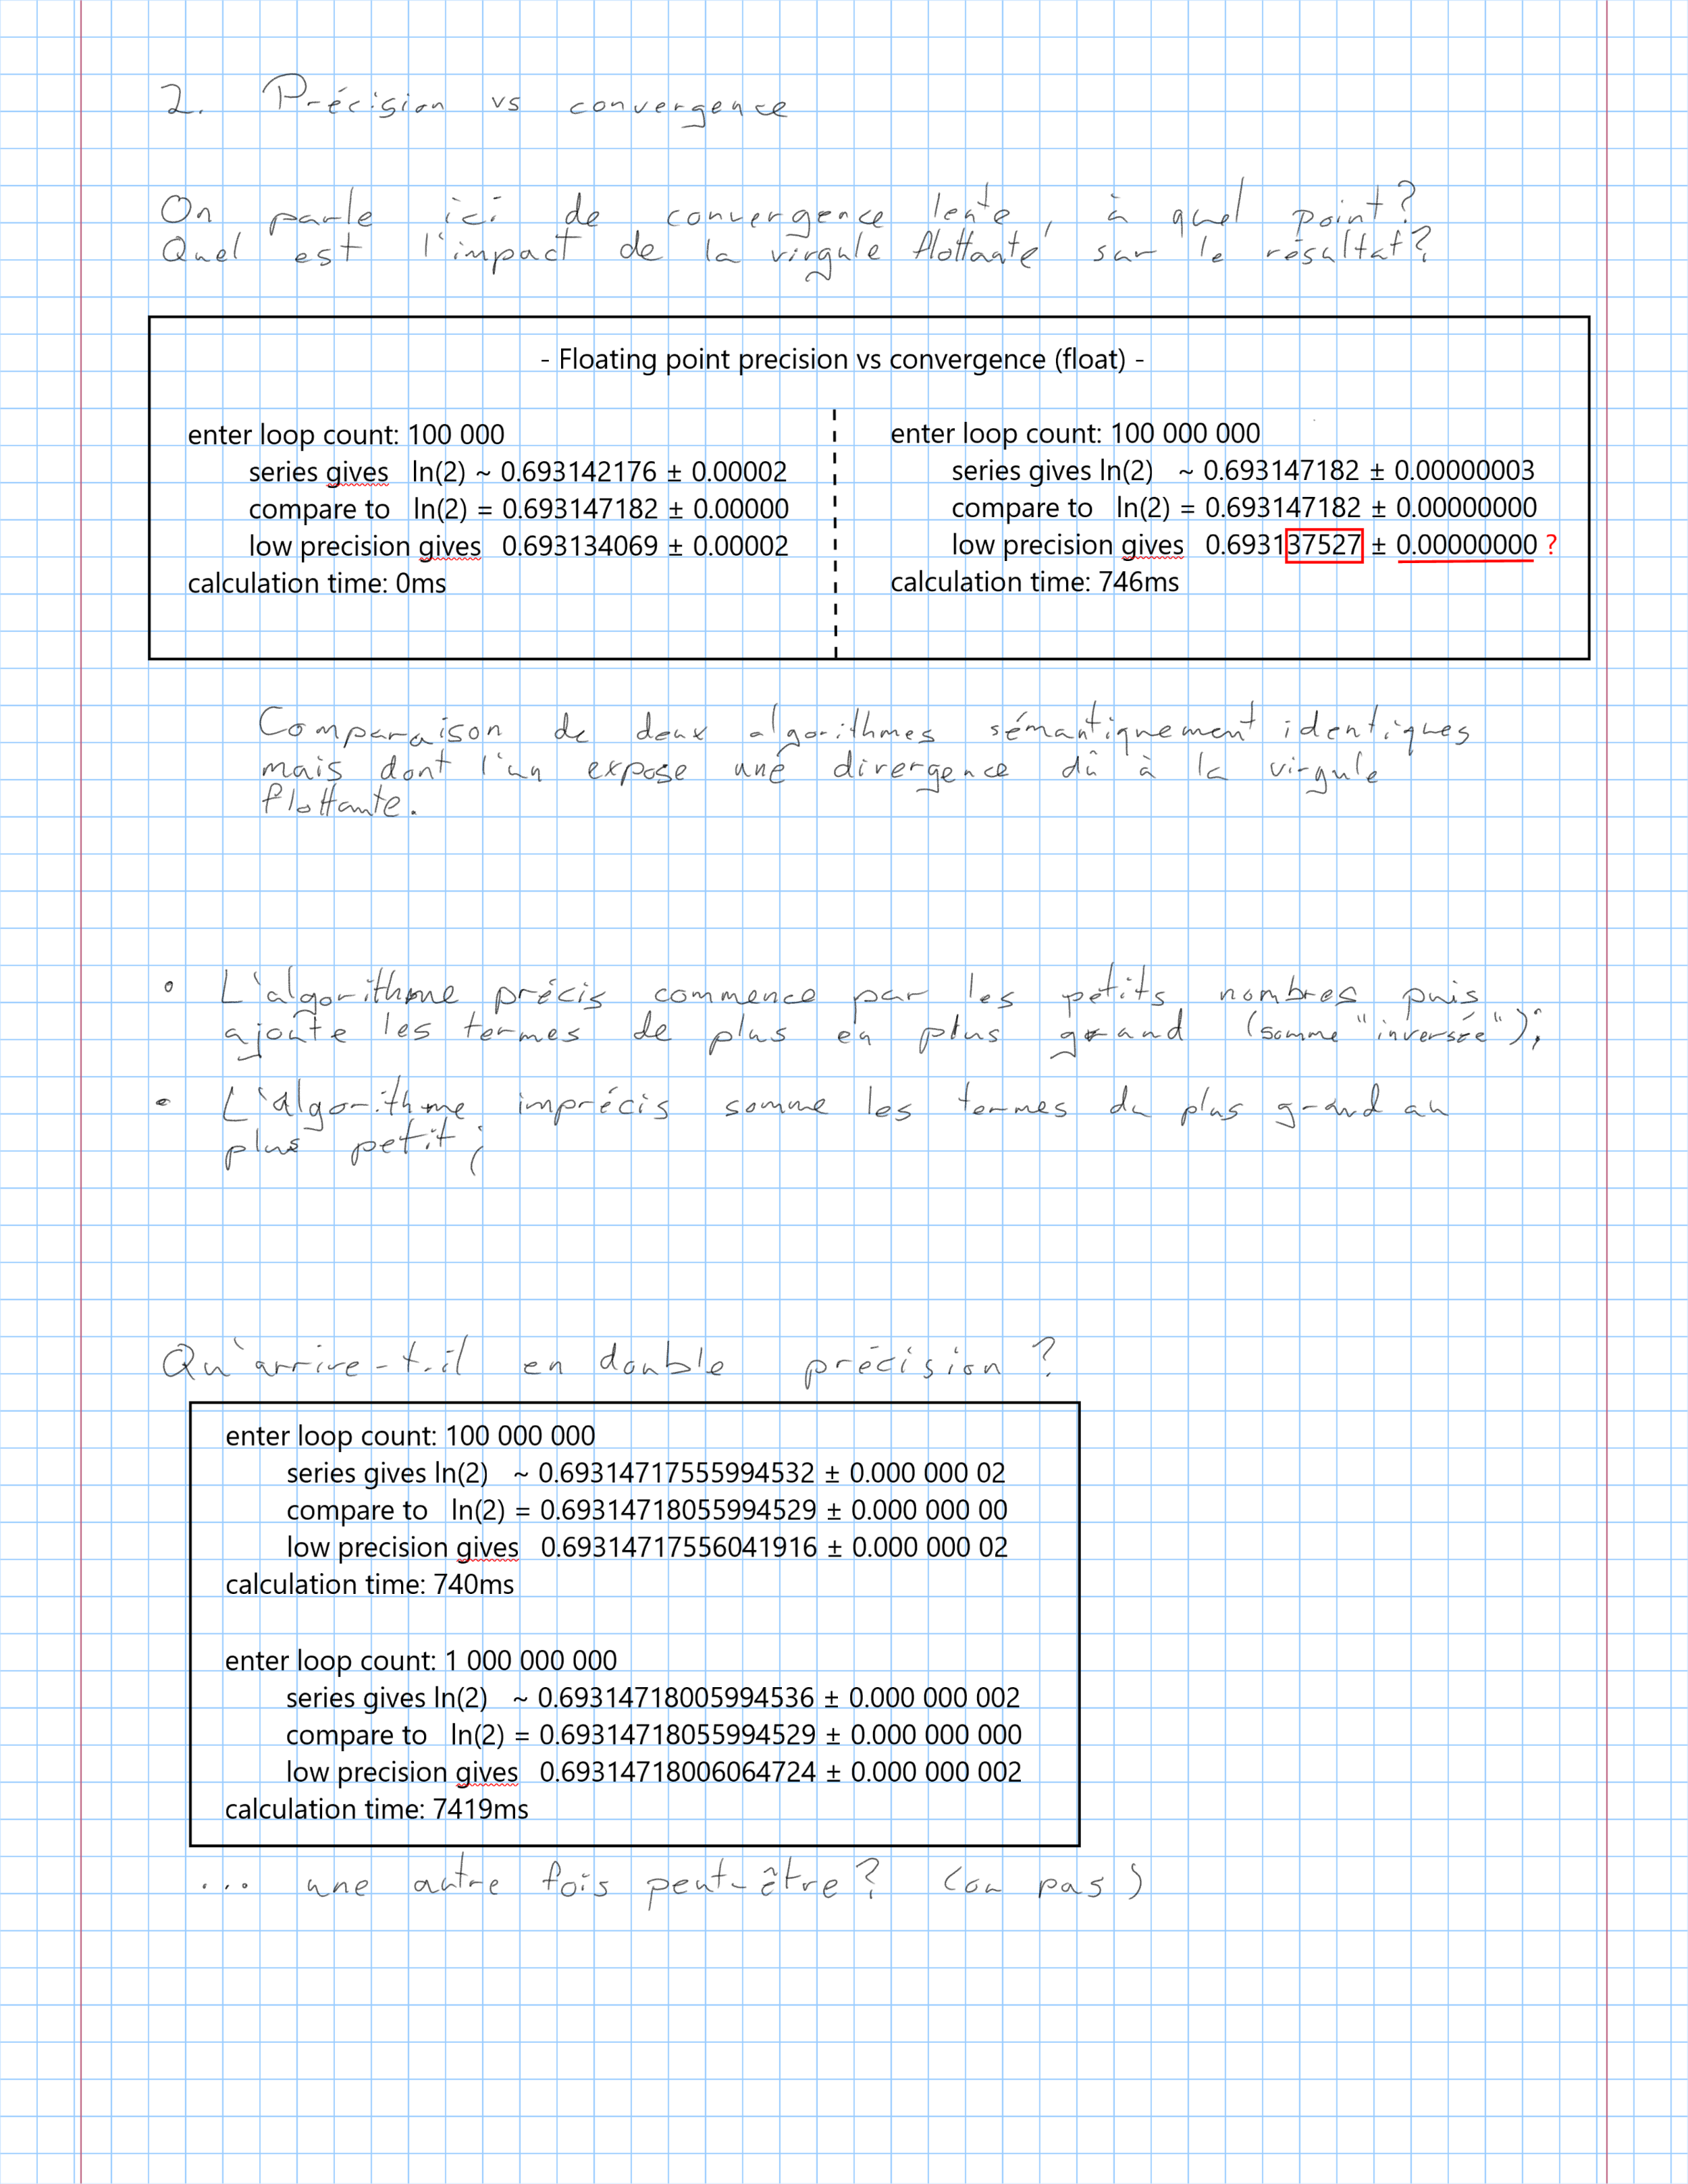 2. Précision vs convergence
On parle ici de convergence lente, à quel point?
Quel est l'impact de la virgule flottante sur le résultat?
- Floating point precision vs convergence (float) -
enter loop count: 100 000
series gives ln(2) ~ 0.693142176 ± 0.00002
compare to ln(2) = 0.693147182 ± 0.00000
low precision gives 0.693134069 ± 0.00002
calculation time: 0ms
enter loop count: 100 000 000
series gives ln(2) ~ 0.693147182 ± 0.00000003
compare to ln(2) = 0.693147182 ± 0.00000000
low precision gives 0.693137527 ± 0.00000000 ?
calculation time: 746ms
Comparaison de deux algorithmes sémantiquement identiques
mais dont l'un expose une divergence dû à la virgule
flottante.
• L'algorithme précis commence par les petits nombres puis
ajoute les termes de plus en plus grand (somme "inversée");
• L'algorithme imprécis somme les termes du plus grand au
plus petit;
Qu'arrive-t-il en double précision?
enter loop count: 100 000 000
series gives ln(2) ~ 0.69314717555994532 ± 0.000 000 02
compare to ln(2) = 0.69314718055994529 ± 0.000 000 00
low precision gives 0.69314717556041916 ± 0.000 000 02
calculation time: 740ms
enter loop count: 1 000 000 000
series gives ln(2) ~ 0.69314718005994536 ± 0.000 000 002
compare to ln(2) = 0.69314718055994529 ± 0.000 000 000
low precision gives 0.69314718006064724 ± 0.000 000 002
calculation time: 7419ms
... une autre fois peut-être? (ou pas)